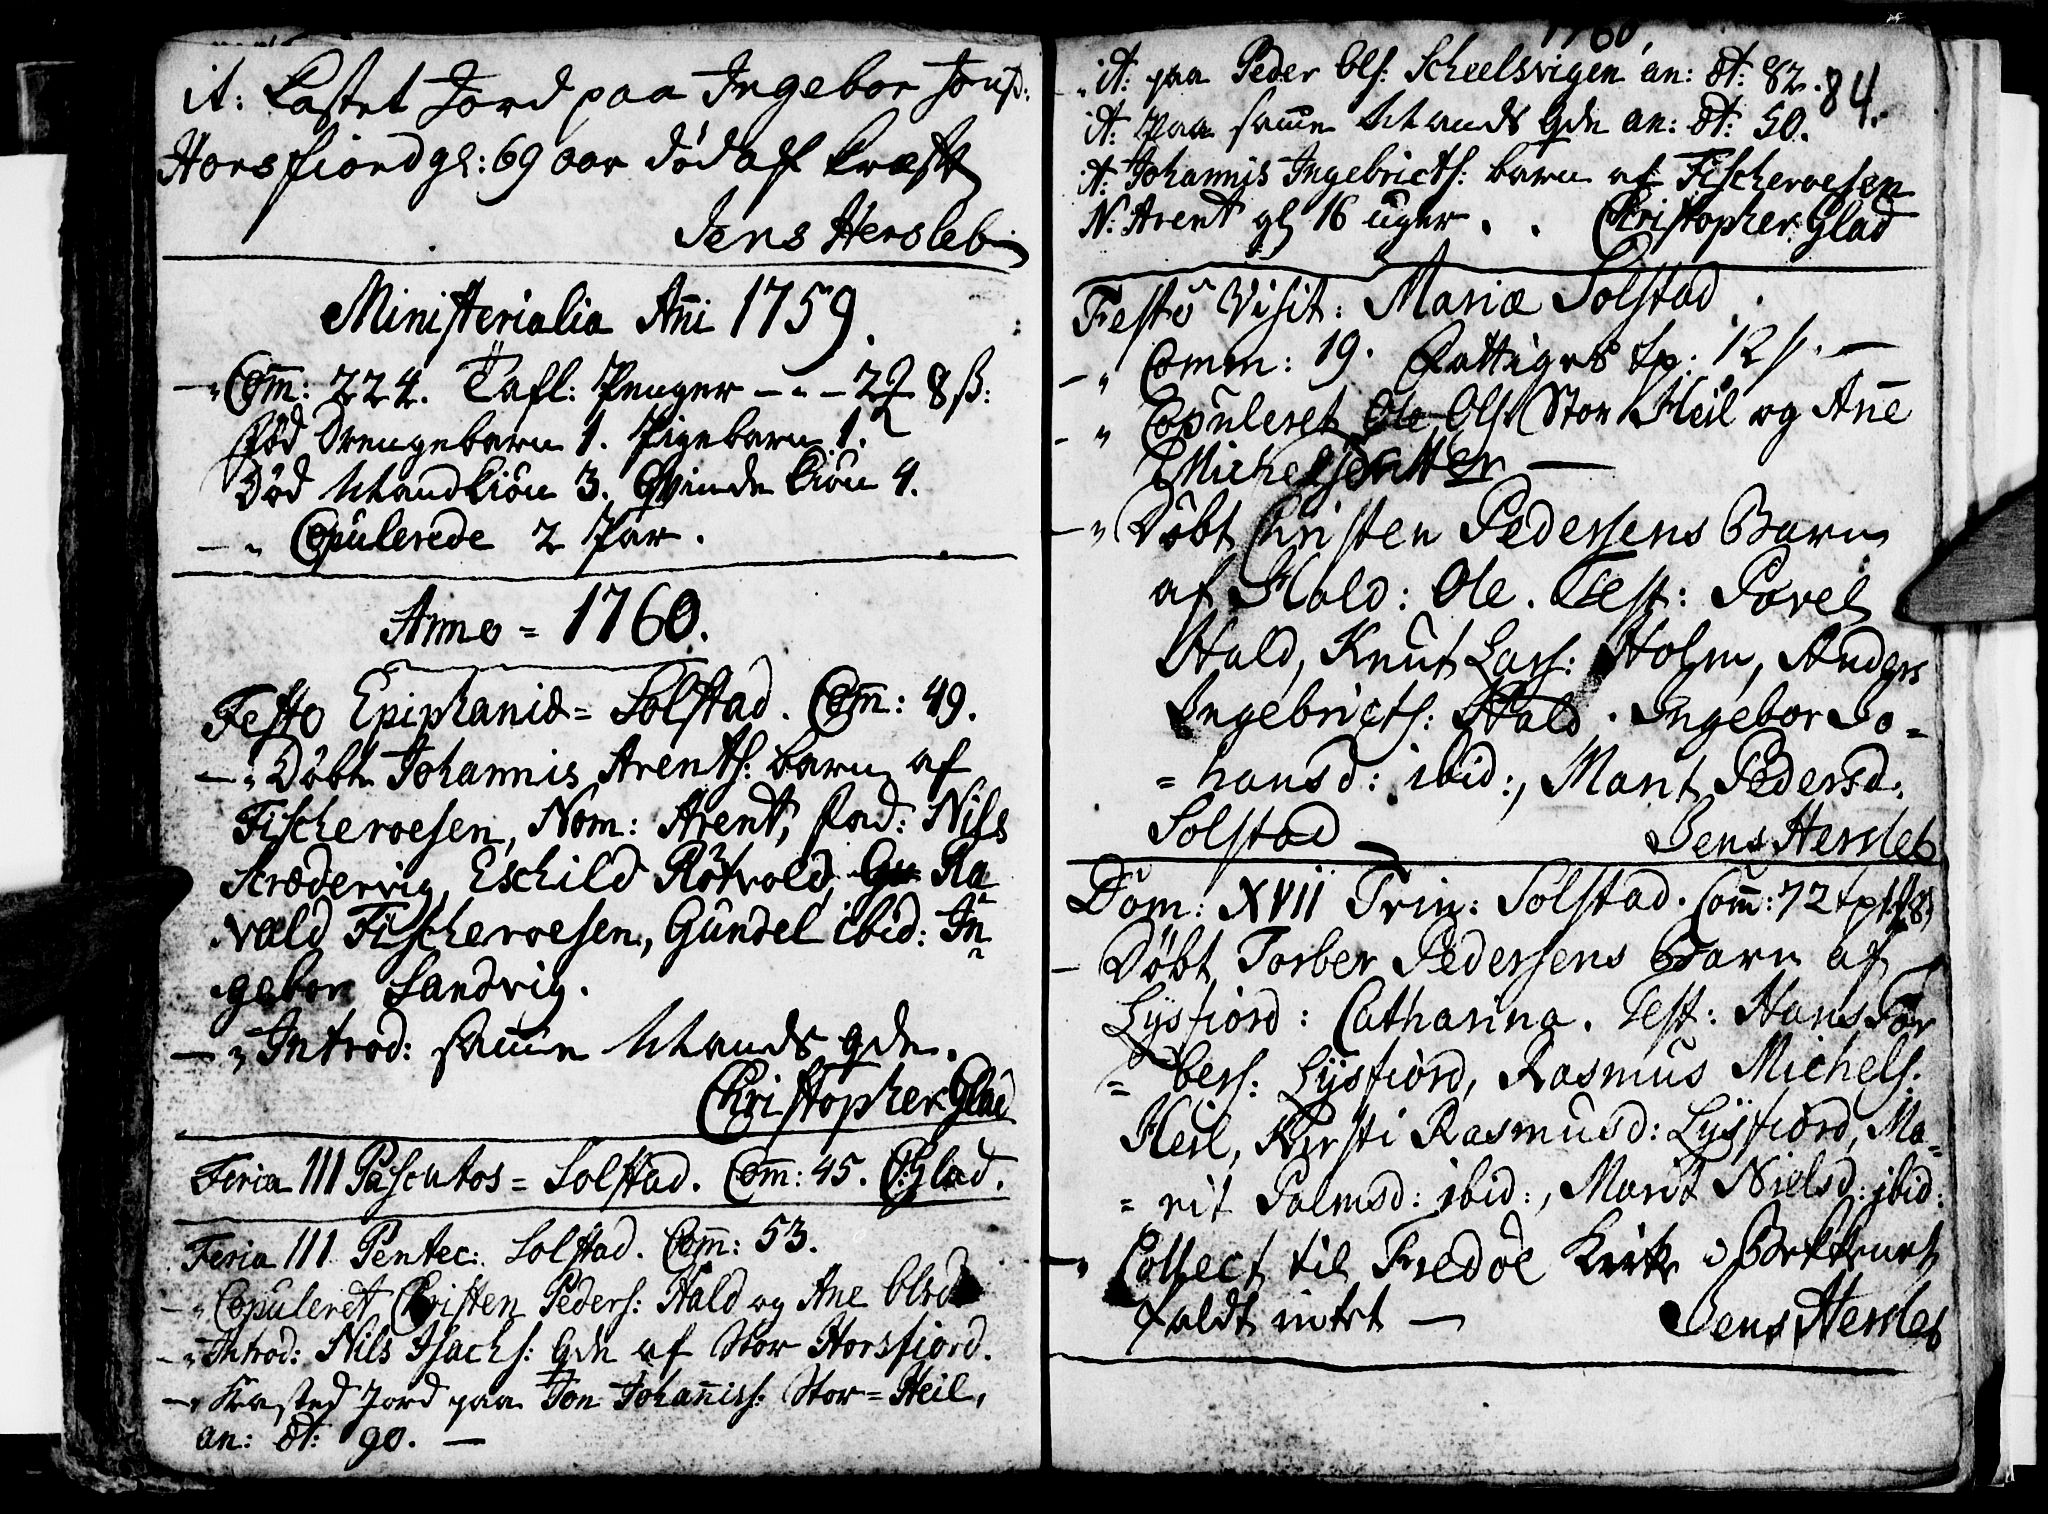 it: Kastet Jord paa Ingebor Jonsß:
Horsfiord gl: 69 aar död af Kræft
Jens Hersleb
Ministerialia Añi 1759.
Com̃: 224. Tafl: Penger - - - 2 8 ß:
Född Drengebarn 1. Pigebarn 1.
Död Mandkiön 3. Qvinde kiön 4.
Copulerede 2 Par.
Anno = 1760.
Festo Epiphaniæ = Solstad. Com̃: 49.
Döbt Johannis Arents: barn af
Fischeroesen, Nom: Arent, Fad: Nils
Scrædervig, Eschild Rötvold, Ra
væld Fischeroesen, Gundel ibid: In
gebor Sandvig.
Introd: sam̃e Mands qde.
Christopher Glad
Feria III Paschatos = Solstad. Com̃: 45. C: Glad.
Feria III Pentec: Solstad. Com̃: 53.
Copuleret Christen Peders: Hald og Ane Olsd
Introd: Nils Isachs: qde af Stor Horsfiord.
Kasted Jord paa Jon Johañiss: Stor = Heil,
an: æt: 90.
1760.
it: paa Peder Ols: Scheelsvigen an: æt: 82.
84.
it: paa sam̃e Mands qde an: æt: 50.
it: Johannis Ingebricts: barn af Fischeroesen
N: Arent gl 16 uger. Christopher Glad
Festo Visit: Mariæ Solstad
Comm: 19. Fattiges tp: 12 ß.
Copuleret Ole Ols: Stor Heil og Añe
Michelsdatter
Döbt Christen Pedersens Barn
af Hald: Ole. Test: Povel
Hald, Knut Lars: Holm, Anders
Ingebricts: Hald. Ingebor Jo-
= hansd: ibid:, Marit Pedersd:
Solstad Jens Hersleb
Dom: XVII Trin: Solstad. Com̃: 72 tp
Döbt Torber Pedersens Barn af
Lysfiord: Catharina. Test: Hans Tor
= bers: Lysfiord, Rasmus Michels:
Heil, Kirsti Rasmusd: Lysfiord, Ma-
= rit Palmsd: ibid:, Marit Nielsd: ibid:
Collect til Fredöe Kirke i Bekkenet
faldt intet
Jens Hersleb